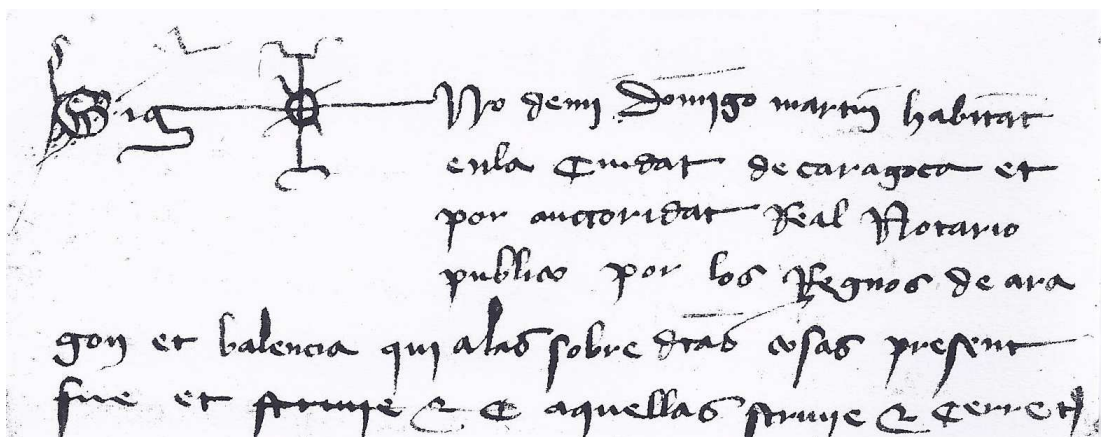 Sig No de mi Domigo martin habitat
en la Ciudat de caragoca et
por auctoridat Real Notario
publico por los Regnos de ara
gon et balencia qui a las sobre dtas cosas present
fue et scriuie & C aquellas scriuie & Cerre et